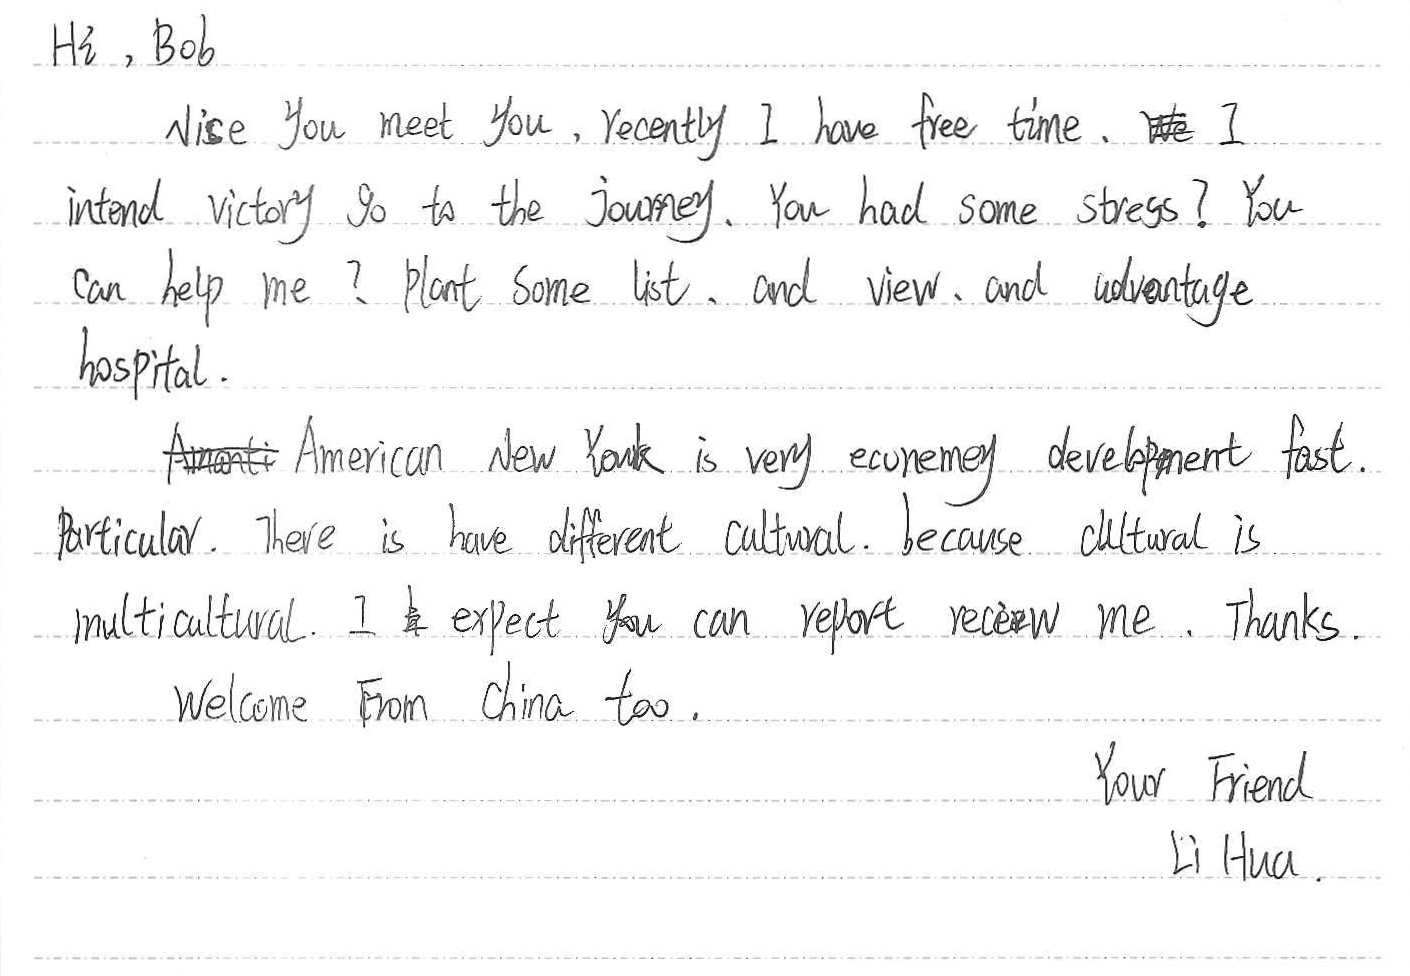 Hi, Bob
Nice you meet you, recently I have free time. I
intend victory go to the journey. You had some stress? You
can help me? Plant some list. and view. and advantage
hospital.
American New Yourk is very ecunemey development fast.
Particular. There is have different cultural. because cultural is
multicultural. I expect you can report me. Thanks.
Welcome From China too.
Your Friend
Li Hua.